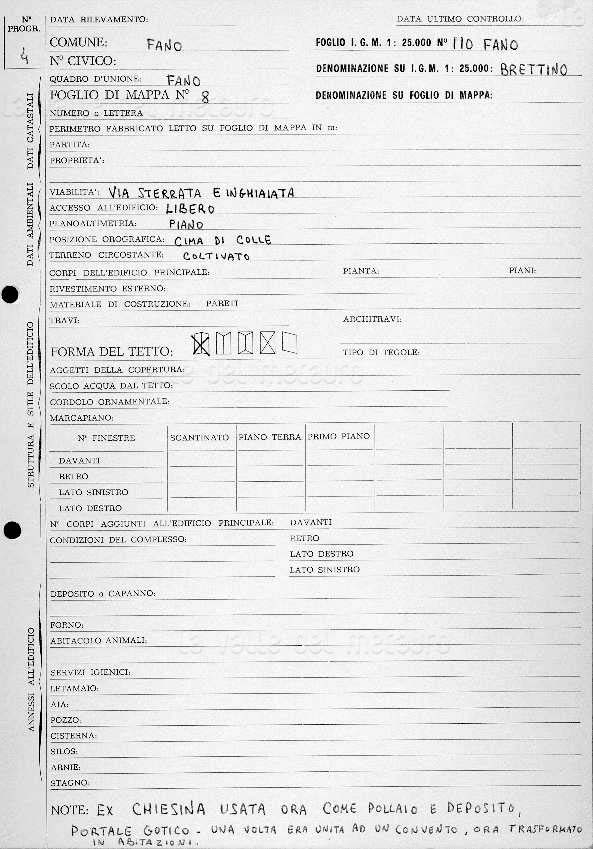 N° PROGR.
4
DATA RILEVAMENTO:
DATA ULTIMO CONTROLLO
COMUNE: FANO
FOGLIO I.G.M. 1: 25.000 N° 110 FANO
N° CIVICO:
DENOMINAZIONE SU I.G.M. 1: 25.000: BRETTINO
QUADRO D'UNIONE: FANO
FOGLIO DI MAPPA N° 8
DENOMINAZIONE SU FOGLIO DI MAPPA:
NUMERO o LETTERA
PERIMETRO FABBRICATO LETTO SU FOGLIO DI MAPPA IN m:
PARTITA:
PROPRIETA':
DATI CATASTALI
VIABILITA': VIA STERRATA E INGHIAIATA
ACCESSO ALL'EDIFICIO: LIBERO
PLANOALTIMETRIA: PIANO
POSIZIONE OROGRAFICA: CIMA DI COLLE
TERRENO CIRCOSTANTE: COLTIVATO
DATI AMBIENTALI
CORPI DELL'EDIFICIO PRINCIPALE: PIANTA: PIANI:
RIVESTIMENTO ESTERNO:
MATERIALE DI COSTRUZIONE: PARETI
TRAVI: ARCHITRAVI:
FORMA DEL TETTO: TIPO DI TEGOLE:
AGGETTI DELLA COPERTURA:
le valle del metauro
SCOLO ACQUA DAL TETTO:
CORDOLO ORNAMENTALE:
MARCAPIANO:
N° FINESTRE SCANTINATO PIANO TERRA PRIMO PIANO
DAVANTI
RETRO
LATO SINISTRO
LATO DESTRO
STRUTTURA E STILE DELL'EDIFICIO
N° CORPI AGGIUNTI ALL'EDIFICIO PRINCIPALE: DAVANTI
CONDIZIONI DEL COMPLESSO: RETRO
LATO DESTRO
LATO SINISTRO
DEPOSITO o CAPANNO:
FORNO:
ABITACOLO ANIMALI:
le valle del metauro
SERVIZI IGIENICI:
LETAMAIO:
AIA:
POZZO:
CISTERNA:
SILOS:
ARNIE:
STAGNO:
ANNESSI ALL'EDIFICIO
NOTE: EX CHIESINA USATA ORA COME POLLAIO E DEPOSITO,
PORTALE GOTICO - UNA VOLTA ERA UNITA AD UN CONVENTO, ORA TRASFORMATO
IN ABITAZIONI.